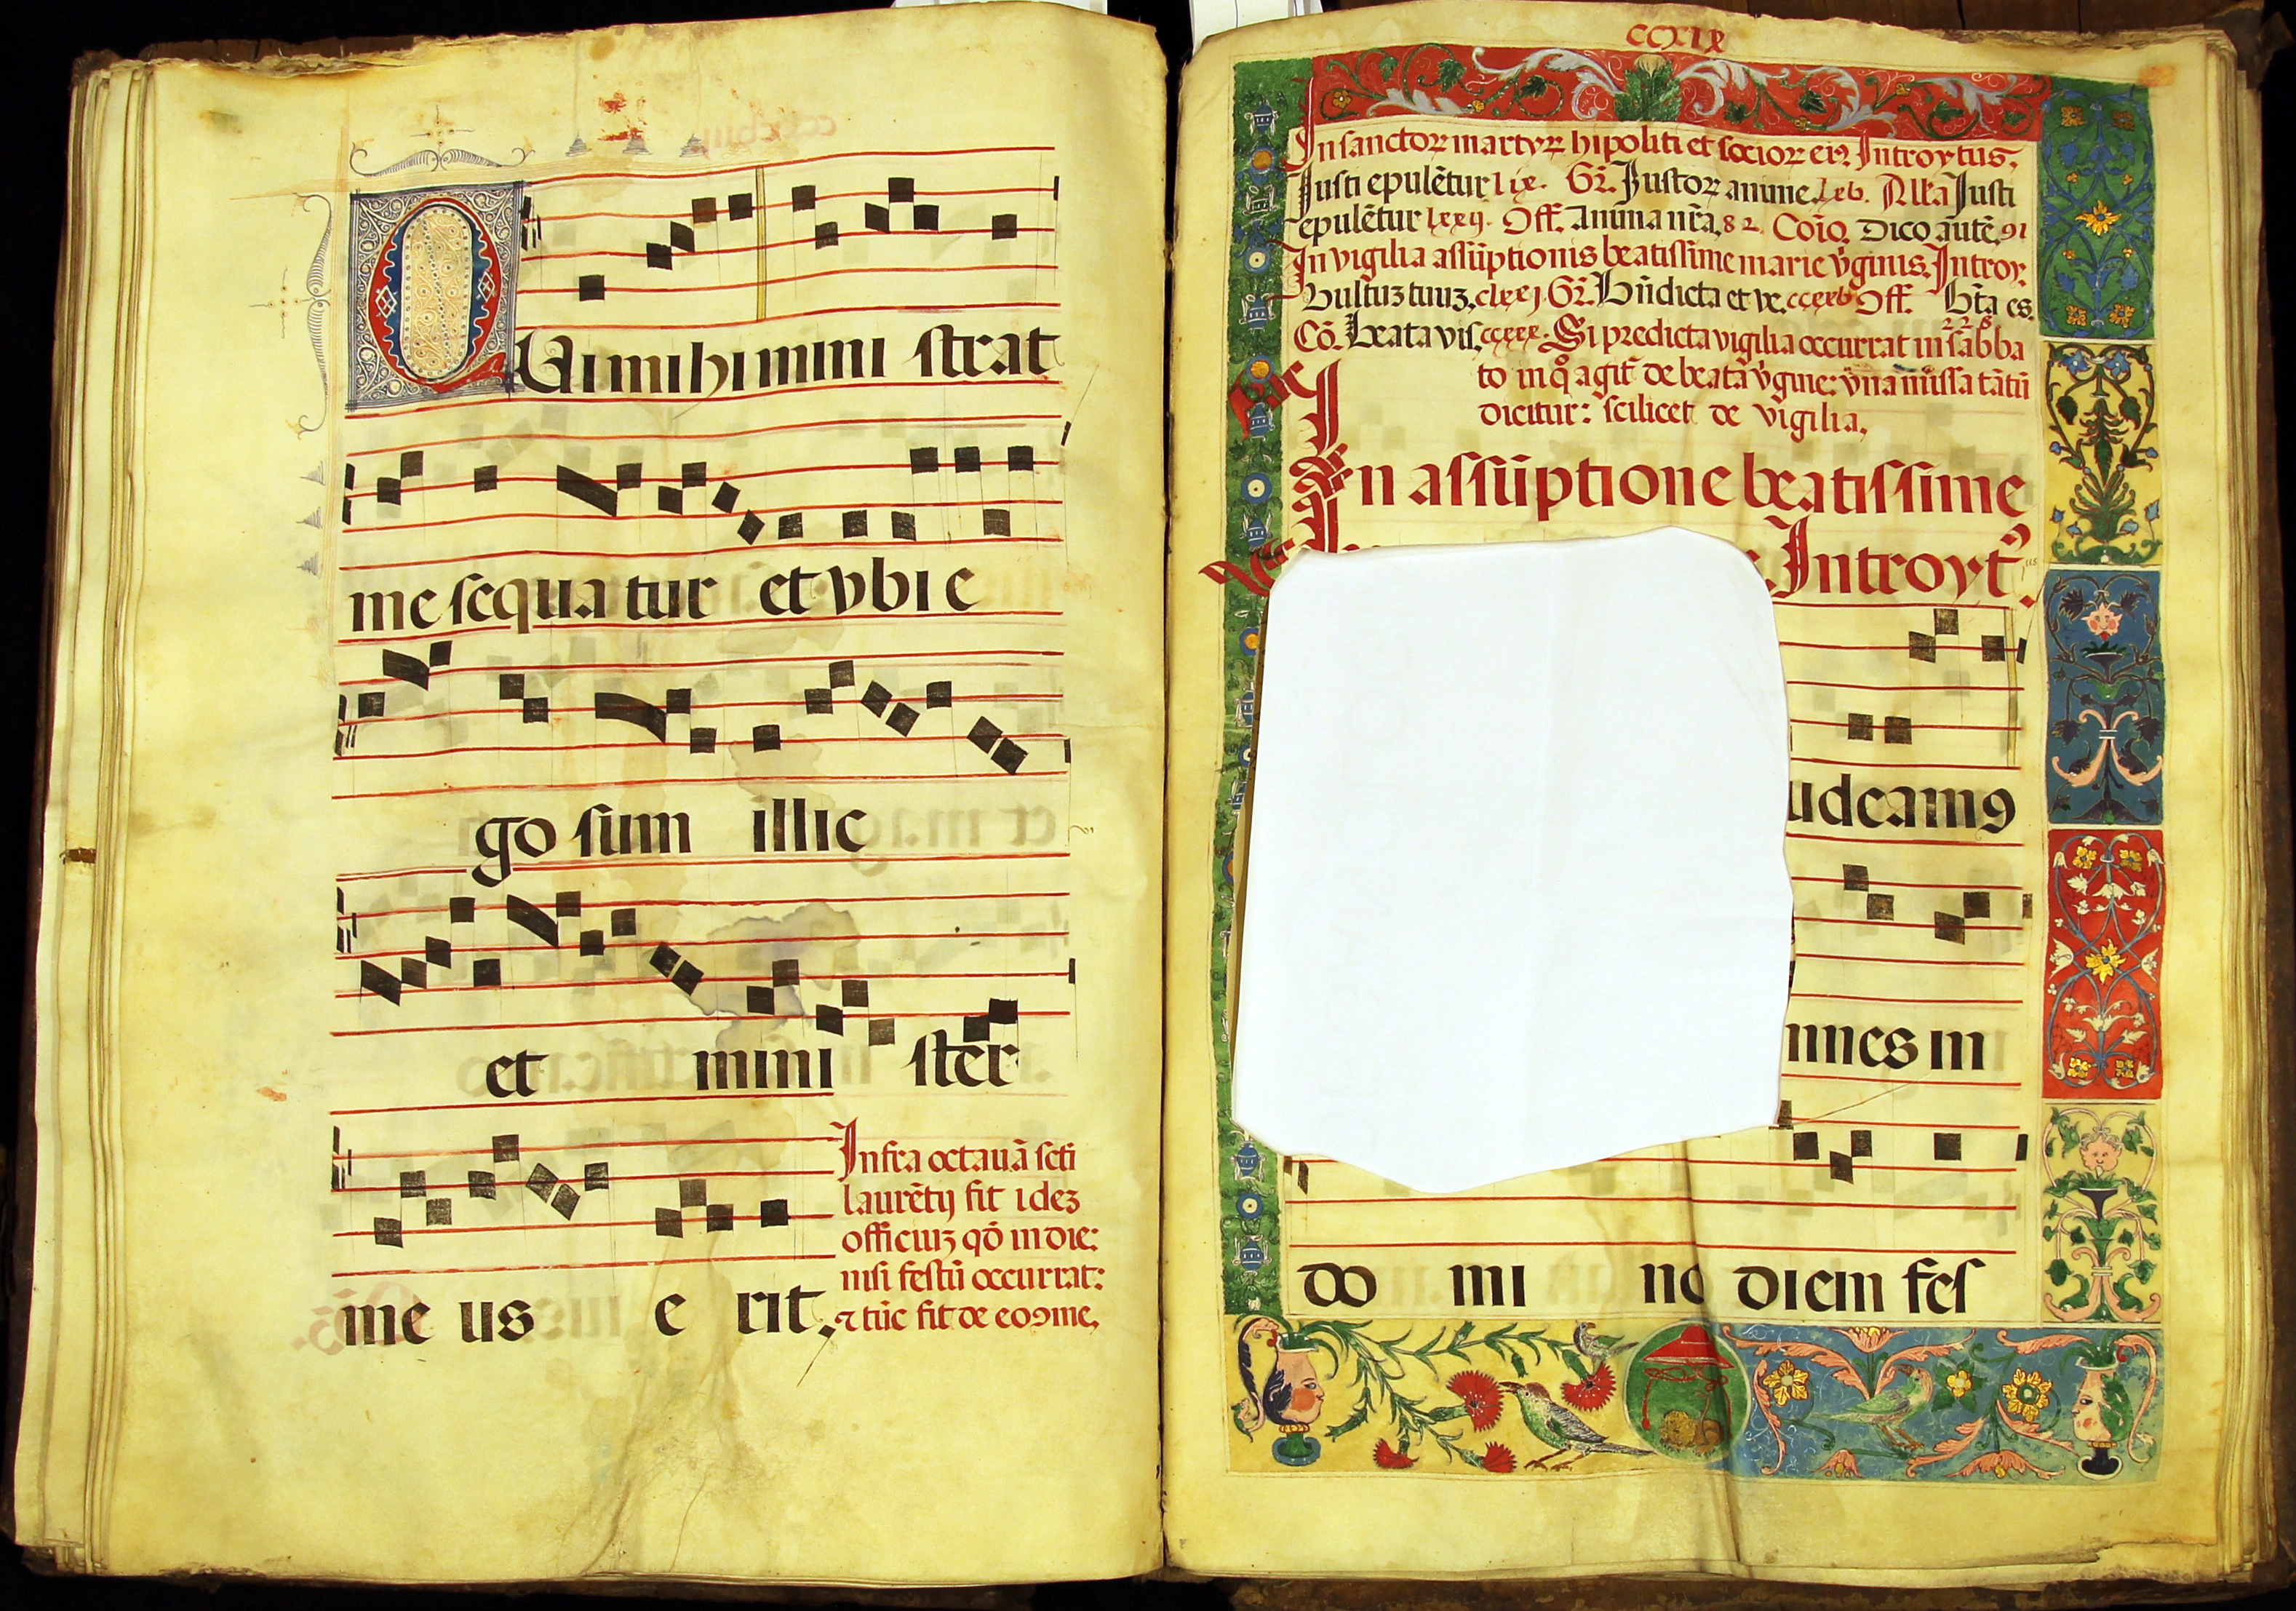 QUi mihi mini strat
me sequa tur et vbi e
go sum illic
et mini ster
me us e rit.
Infra octauã scti
laurẽtij fit idez
officiuz qđ in die:
nisi festũ occurrat:
⁊ tũc fit de eo ꝯme.
CCXIX
In sanctoꝝ martyꝝ hipoliti et socioꝝ eiꝰ Introytus.
Iusti epulẽtur lix. Gr̃. Iustoꝝ anime. lxv. Alla Iusti
epulẽtur lxxij. Off. Anima nr̃a. 82. Coĩo. Dico autẽ. 91
In vigilia assũptionis beatissime marie v̾ginis. Introy.
Vultuz tuuz. clxxj. Gr̃. Bñdicta et ve. ccxxv Off. Bt̃a es.
228
Cõ. Beata vis. ccxxx. Si predicta vigilia occurrat in sabba
to in q̊ agit̃ de beata v̾gine: vna missa tãtũ
dicitur: scilicet de vigilia.
In assũptione beatissime
Introytꝰ.
udeamꝰ
nnes in
do mi no diem fes